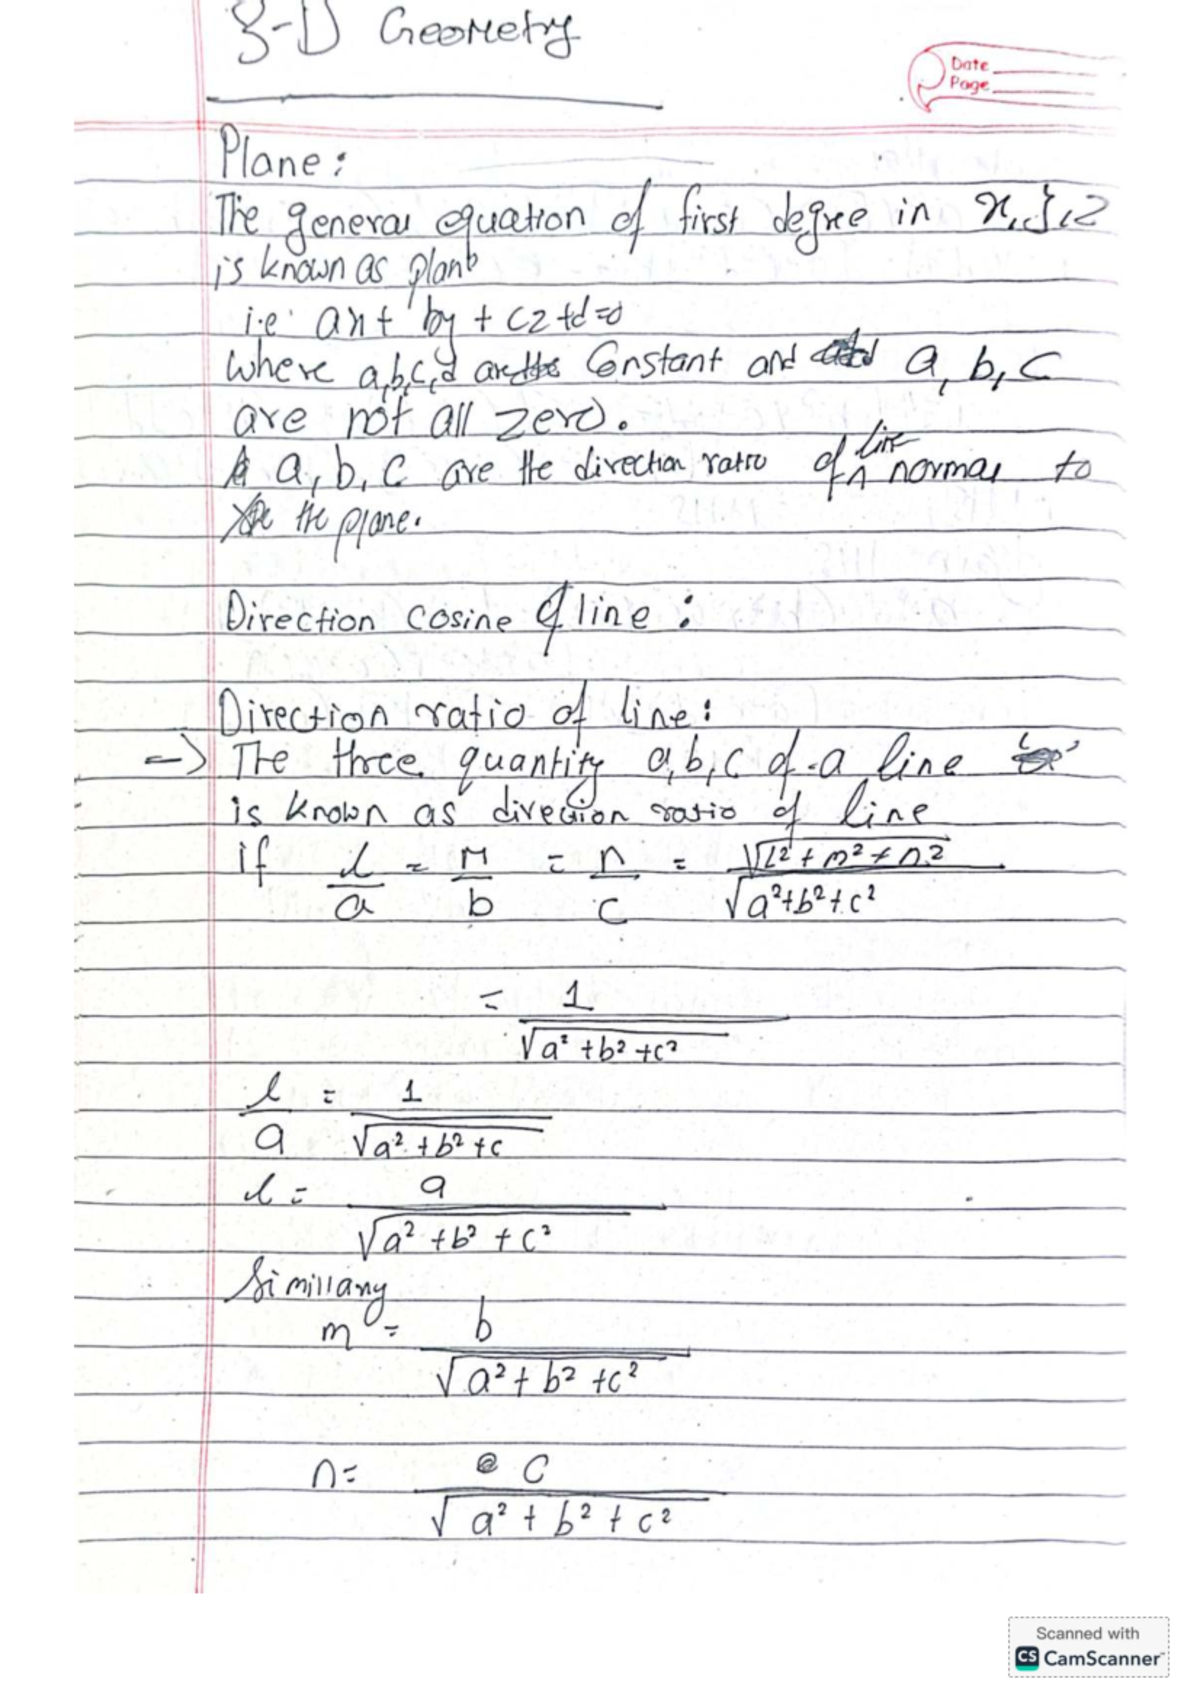 3-D Geometry
Date
Page
Plane:
The general equation of first degree in x, y, z
is known as plane
i.e. ax + by + cz + d = 0
Where a, b, c, d are the Constant and a, b, c
are not all zero.
a, b, c are the direction ratio of line normal to
the plane.
Direction cosine of line :
Direction ratio of line :
=> The three quantity a, b, c of a line
is known as direction ratio of line
if l/a = m/b = n/c = √(l² + m² + n²) / √(a² + b² + c²)
= 1 / √(a² + b² + c²)
l/a = 1 / √(a² + b² + c)
l = a / √(a² + b² + c²)
Simillarly
m = b / √(a² + b² + c²)
n = c / √(a² + b² + c²)
Scanned with
CS CamScanner